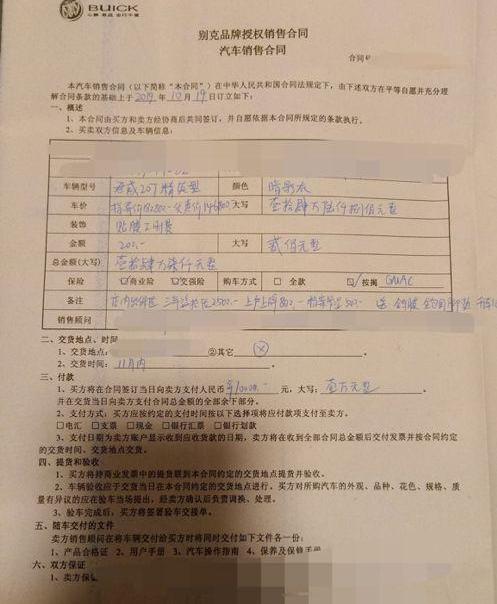 BUICK
心静 思远 志行千里
别克品牌授权销售合同
汽车销售合同
合同
本汽车销售合同（以下简称“本合同”）在中华人民共和国合同法规定下，由下述双方在平等自愿并充分理
解合同条款的基础上于2019年10月19日订立如下：
一、概述
1、本合同由买方和卖方经协商后共同签订，并自愿依据本合同所规定的条款执行。
2、买卖双方信息及车辆信息：
车辆型号 20T 颜色 暗影灰
车价 指导价 大写 壹拾肆万陆仟捌佰元整
装饰 贴膜工时费
金额 200.- 大写 贰佰元整
总金额(大写) 壹拾肆万柒仟元整
保险 ☑商业险 ☑交强险 购车方式 □全款 ☑按揭 GMAC
备注 2500.- 上牌800.- 500.- 送
销售顾问
二、交货地点、时间
1、交货地点： ②其它
2、交货时间：11月内。
三、付款
1、买方将在合同签订当日向卖方支付人民币¥10000.-元，大写：壹万元整
并在交货当日向卖方支付合同总金额的全部余下部分。
2、支付方式：买方应按约定的支付时间按以下选择项将应付款项支付至卖方。
□电汇 □支票 □现金 □银行汇票 □银行划款
3、支付日期为卖方账户显示收到应收货款的日期，卖方将在收到全部合同总金额后交付发票并按合同约定
的交货时间、交货地点交货。
四、提货和验收
1、买方将持商业发票中的提货联到本合同约定的交货地点提货并验收。
2、车辆验收应于交货当日在本合同约定的交货地点进行。买方对所购汽车的外观、品种、花色、规格、质
量有异议的应在验车当场提出，经卖方确认后负责调换、处理。
3、验车完成后，买方将签署验车交接单。
五、随车交付的文件
卖方销售顾问在将车辆交付给买方时将同时交付如下文件各一份：
1、产品合格证 2、用户手册 3、汽车操作指南 4、保养及保修手册
六、双方保证
1、卖方保